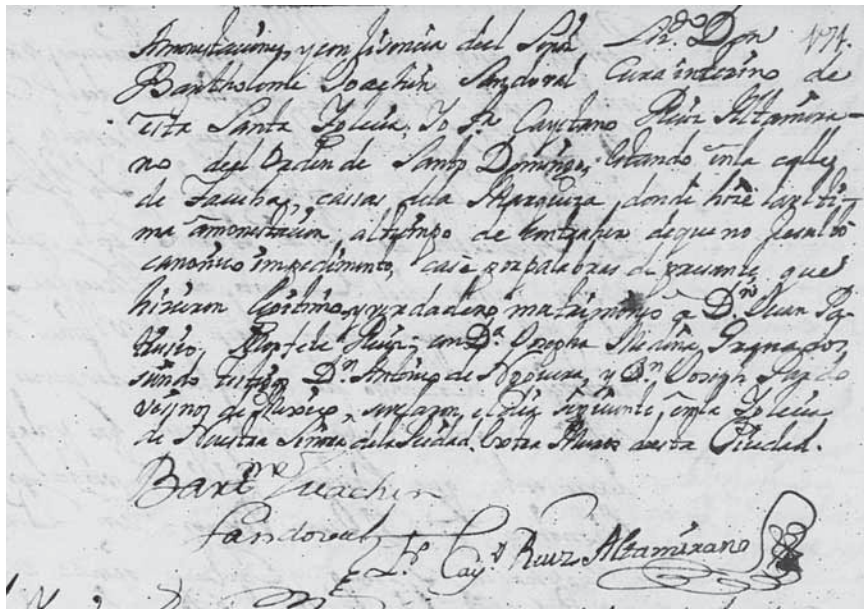 Amonestaciones, y con lisencia del Señor Lizdo Don 171.
Bartholome Joachin Sandoval Cura interino de
esta Santa Yglecia. Yo Fr Cayetano Ruiz Altamira-
no del Orden de Santo Domingo, estando en la calle
de Tacuba, cassas de la Marqueza, donde hize la ulti-
ma amonestacion, al tiempo de contraher de que no resultò
canonico impedimento, casè por palabras de presente, que
hisieron lexitimo, y verdadero matrimonio a Dn Juan Pa-
tricio, Ruiz, con Da Josepha Medina, Granados
siendo testigos Dn Antonio de Noguera, y Dn Joseph Pardo
vesinos de Mexico, el dia siguiente, en la Yglecia
de Nuestra Señora de la Piedad, Extra Muros de esta Ciudad.
Barme Juachin
Sandoval
Fr Cayo Ruiz Altamirano